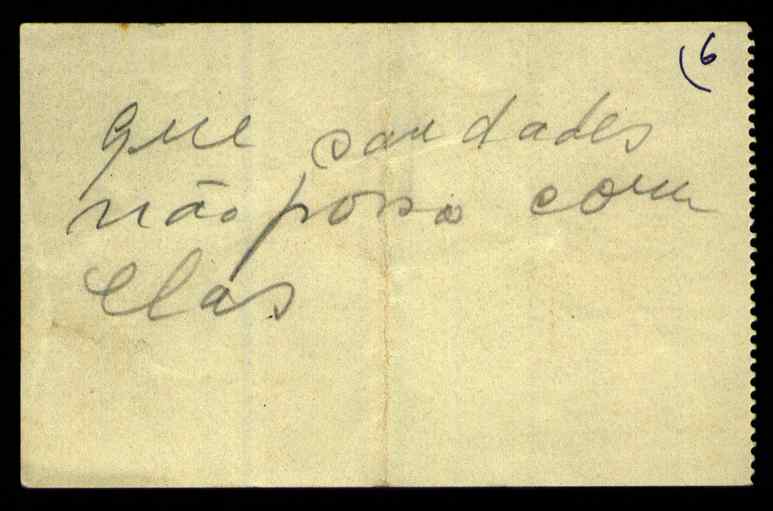 (6
que saudades
não posso com
elas